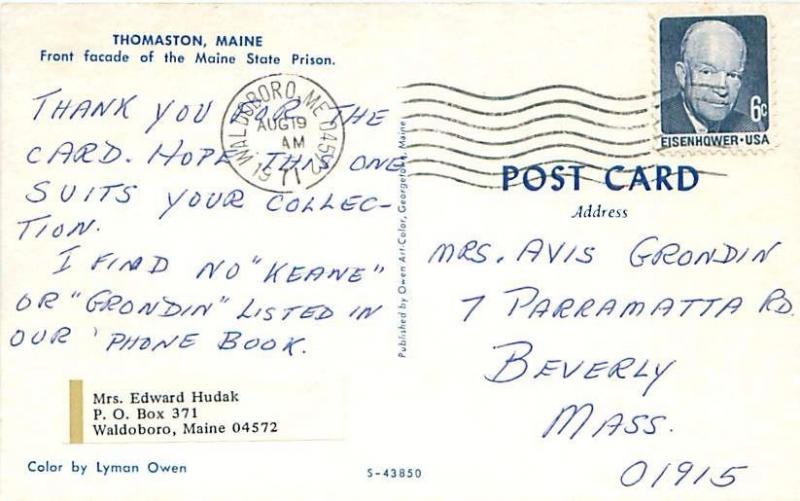 THOMASTON, MAINE
Front facade of the Maine State Prison.
THANK YOU FOR THE
CARD. HOPE THIS ONE
SUITS YOUR COLLEC-
TION.
I FIND NO "KEANE"
OR "GRONDIN" LISTED IN
OUR 'PHONE BOOK.
Mrs. Edward Hudak
P. O. Box 371
Waldoboro, Maine 04572
Color by Lyman Owen
S-43850
Published by Owen Art-Color, Georgetown, Maine
WALDOBORO, ME 04572
AUG 19
AM
1971
6c
EISENHOWER·USA
POST CARD
Address
MRS. AVIS GRONDIN
7 PARRAMATTA RD.
BEVERLY
MASS.
01915